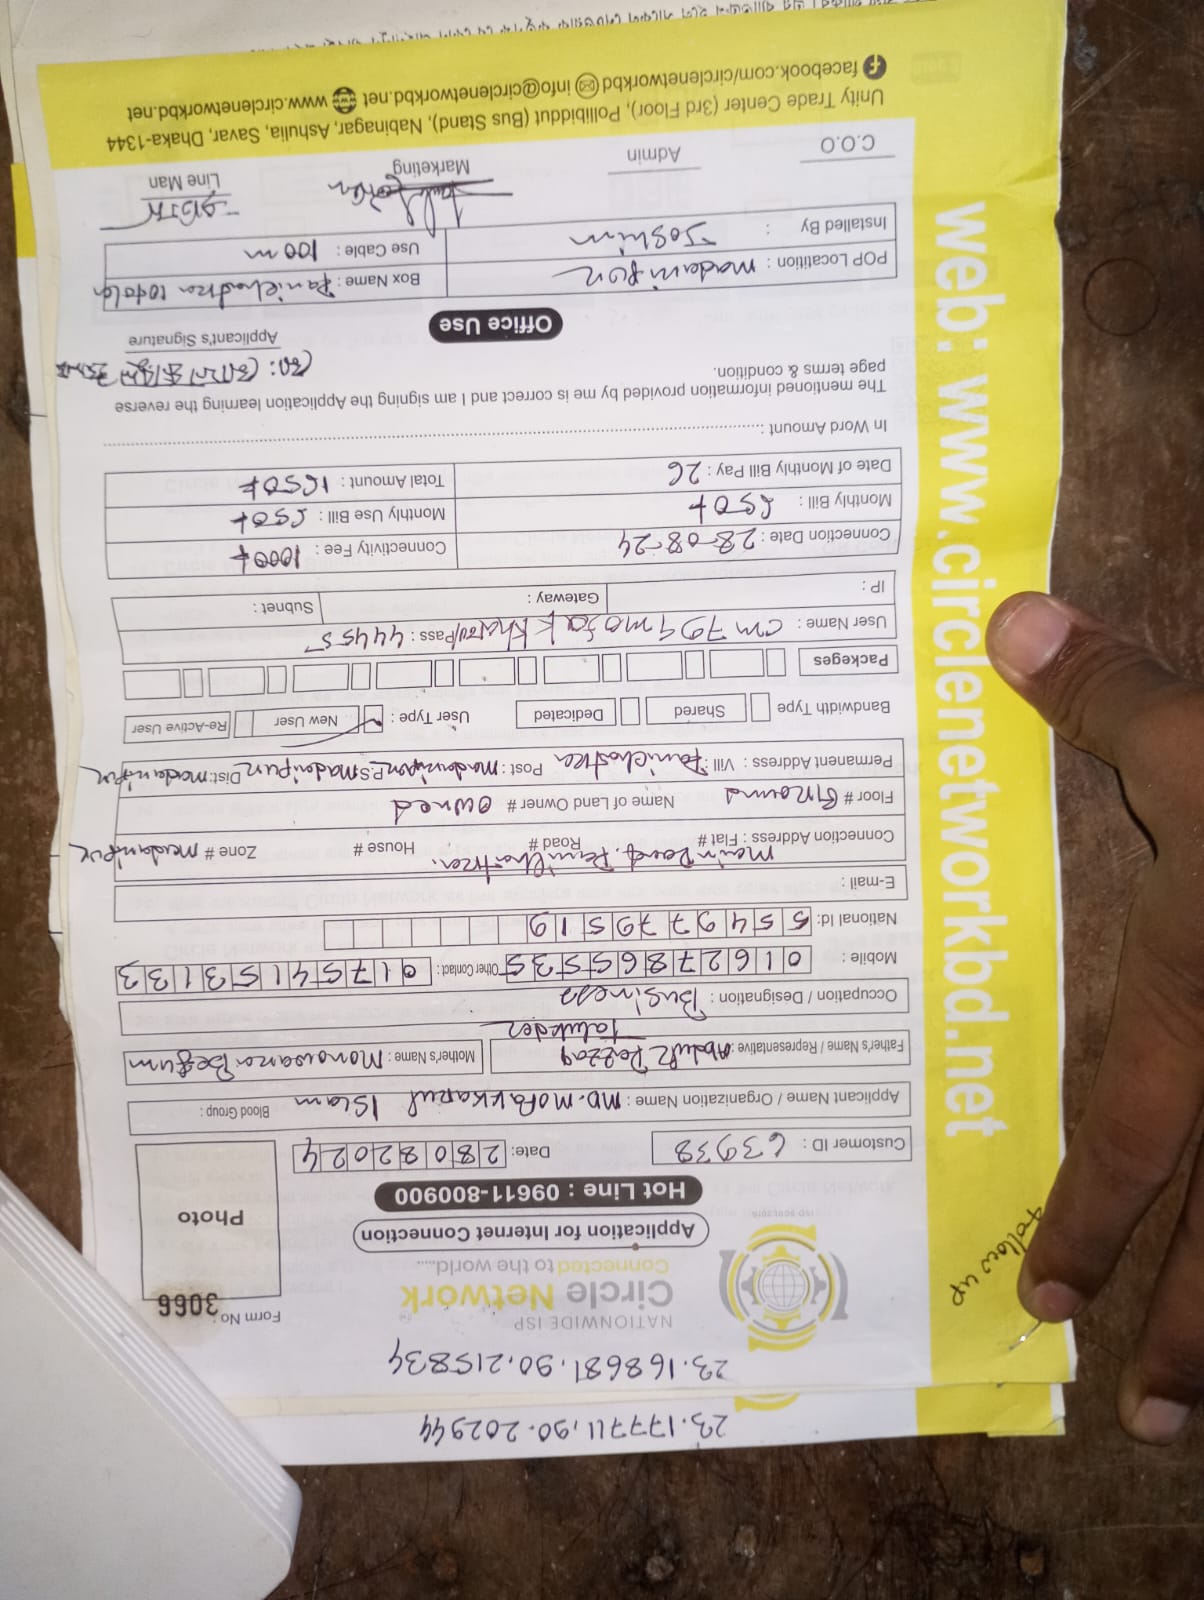 23.177711,90.202944
23.168681,90.215834
Follow up
NATIONWIDE ISP
Circle Network
Connected to the world.....
Form No : 3066
Application for Internet Connection
Hot Line : 09611-800900
Photo
Customer ID : 63938 Date: 28082024
Applicant Name / Organization Name : MD. Mofakkarul Islam Blood Group :
Father's Name / Representative : Abdur Razzaq Talukder Mother's Name : Monowara Begum
Occupation / Designation : Business
Mobile : 01627865535 Other Contact : 01754153133
National Id: 5549779519
E-mail :
Connection Address : Flat # Road # House # Zone # madaripur
Main Road, Panichatra.
Floor # Ground Name of Land Owner # Owned
Permanent Address : Vill : Panichatra Post : Madaripur P.S Madaripur Dist: madaripur
Bandwidth Type Shared Dedicated User Type : New User Re-Active User
Packeges
User Name : Pass : 44455
IP : Gateway : Subnet :
Connection Date : 28-08-24 Connectivity Fee : 1000
Monthly Bill : 650 Monthly Use Bill : 650
Date of Monthly Bill Pay : 26 Total Amount : 1650
In Word Amount :
The mentioned information provided by me is correct and I am signing the Application learning the reverse
page terms & condition.
Applicant's Signature
Office Use
POP Locatition : madaripur Box Name : Panichatra
Installed By : Joshim Use Cable : 100 m
C.O.O Admin Marketing Line Man
Unity Trade Center (3rd Floor), Pollibiddut (Bus Stand), Nabinagar, Ashulia, Savar, Dhaka-1344
facebook.com/circlenetworkbd info@circlenetworkbd.net www.circlenetworkbd.net
web: www.circlenetworkbd.net